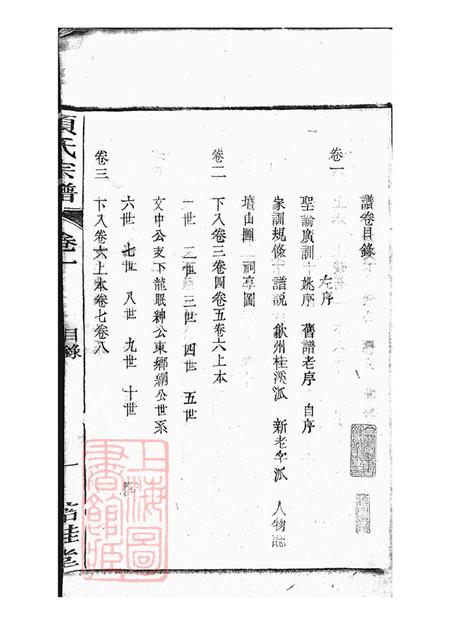 譜卷目錄
卷一
左序
聖諭廣訓十 姚序 舊譜老序 自序
家訓規條 譜說 歙州桂溪派 新老字派 人物誌
墳山圖 祠亭圖
卷二
下入卷三卷四卷五卷六上本
一世 二世 三世 四世 五世
文中公支下龍眠紳公東鄉綱公世系
六世 七世 八世 九世 十世
卷三
下入卷六上本卷七卷八
項氏宗譜
卷一
目錄
一
桂堂
上海圖書館藏